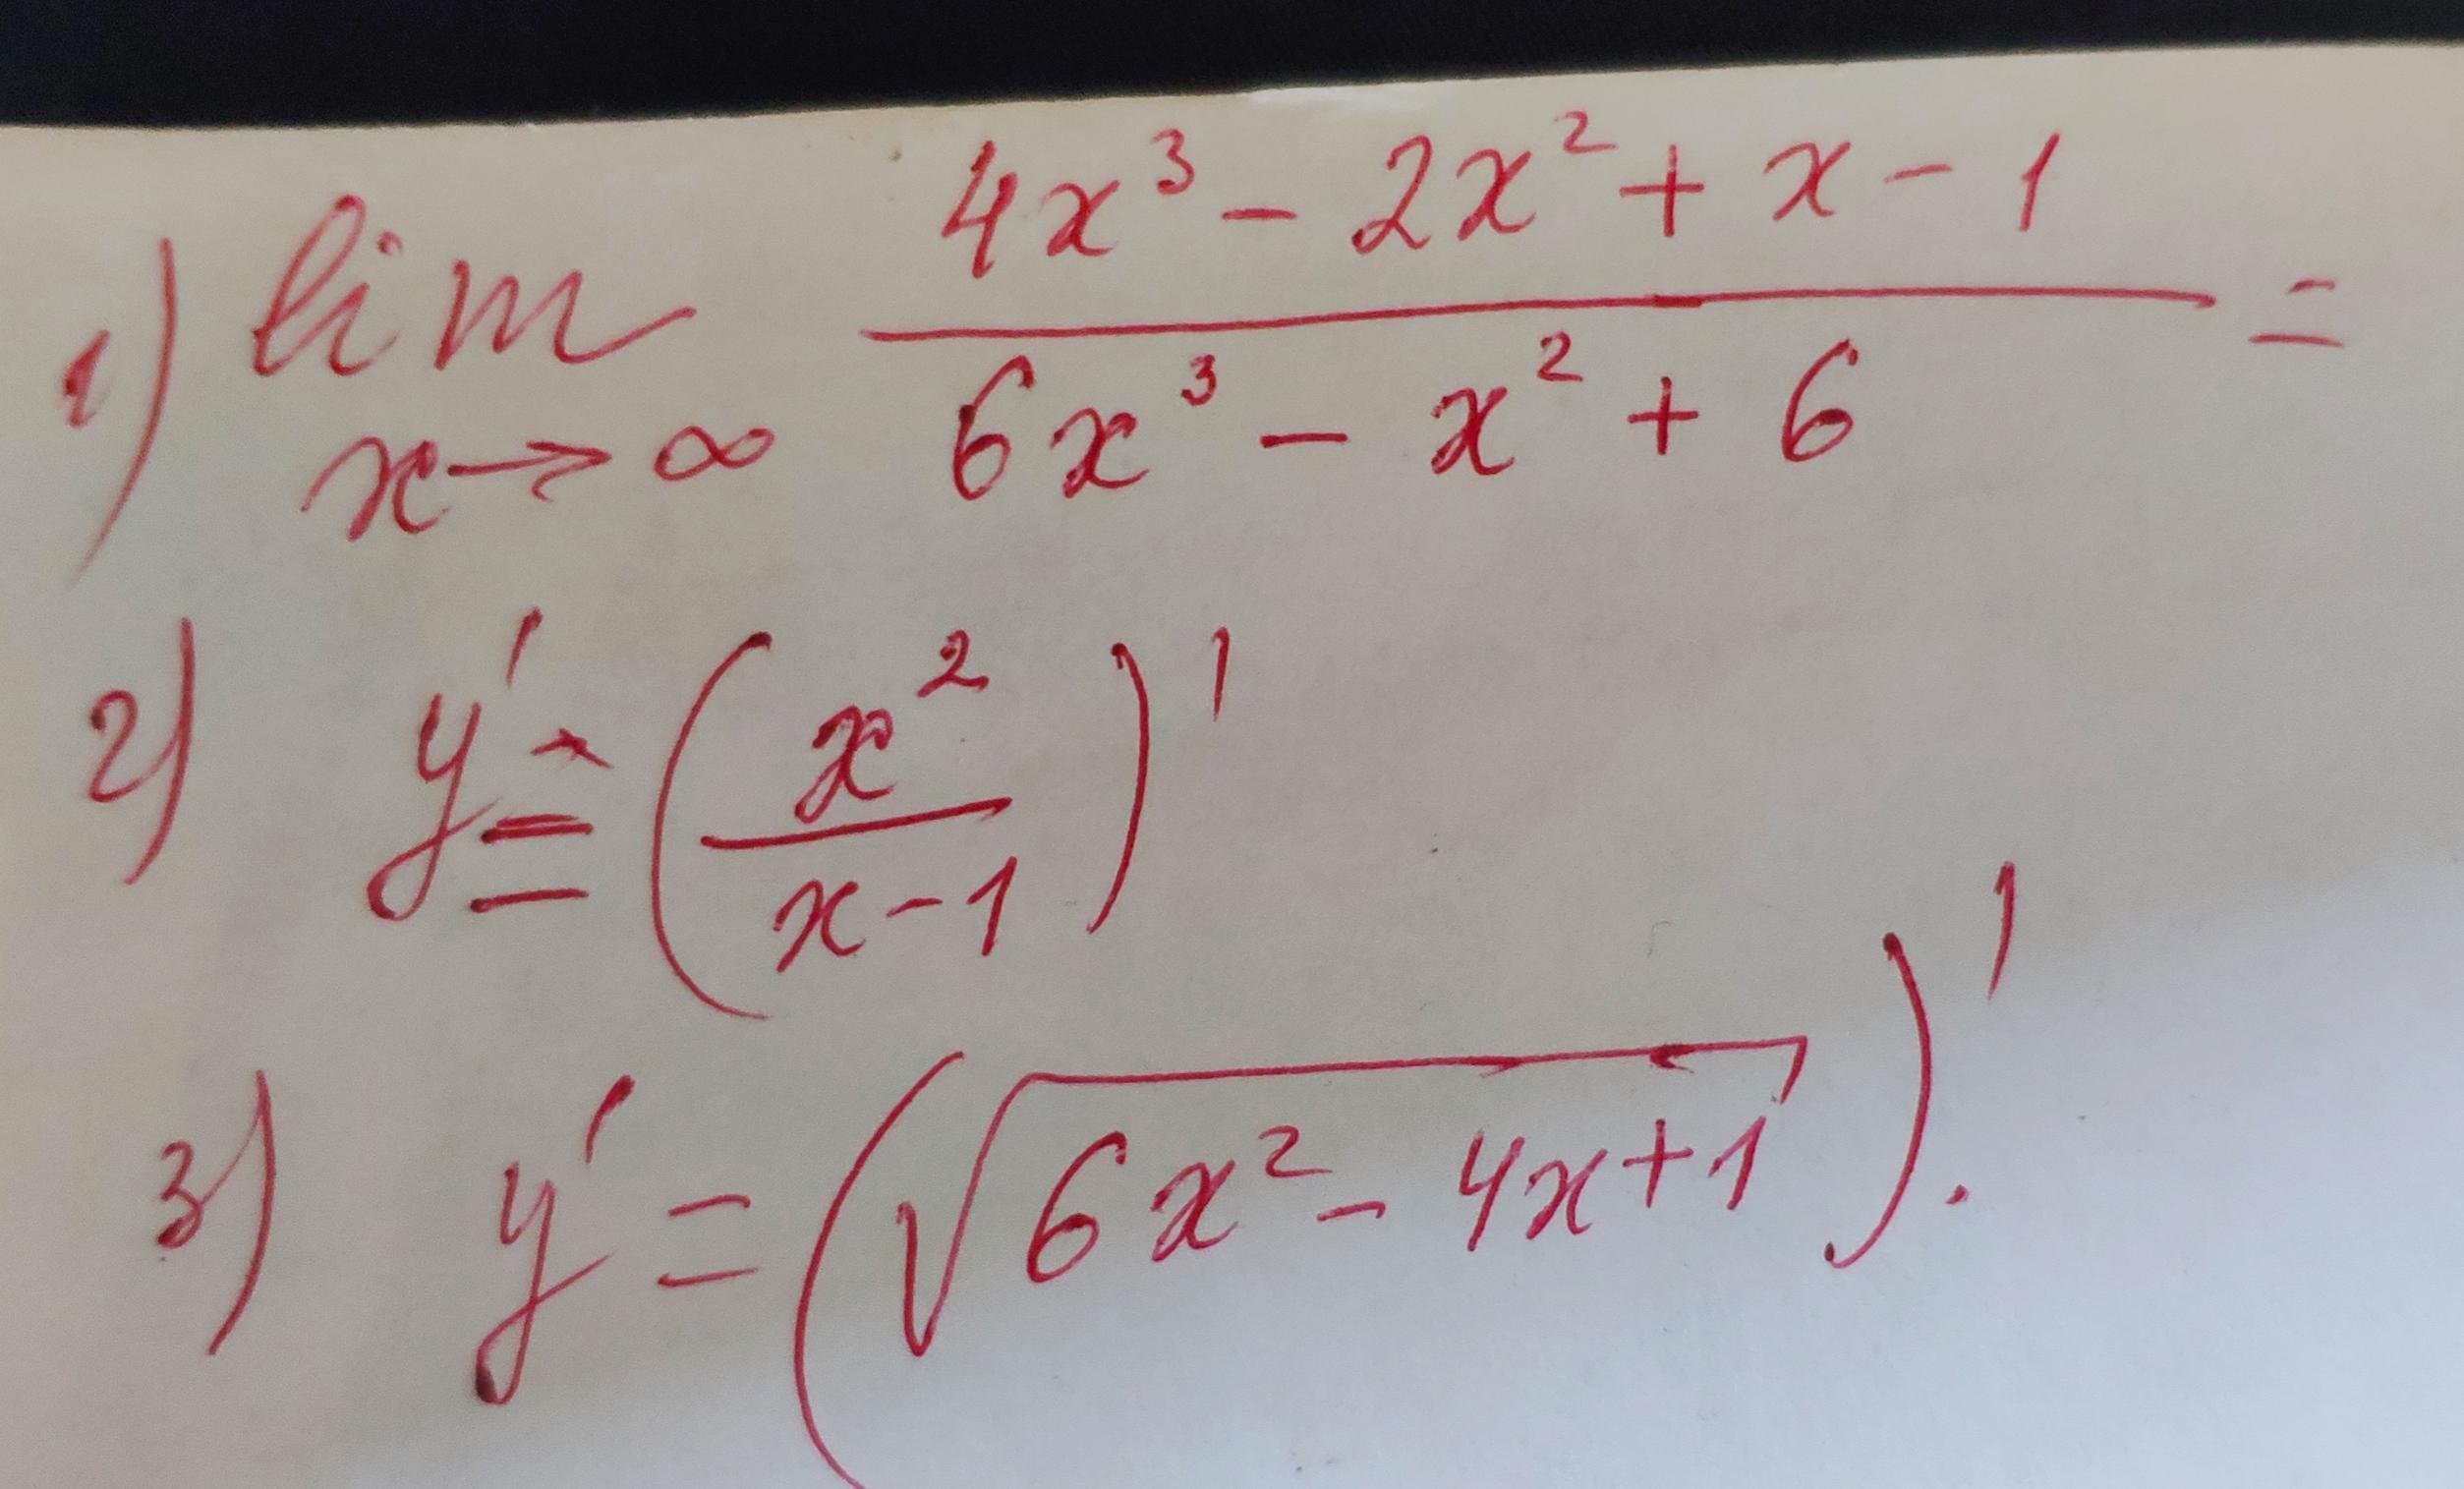 1) lim x→∞ (4x³ - 2x² + x - 1)/(6x³ - x² + 6) =
2) y' = (x²/(x-1))'
3) y' = (√(6x² - 4x + 1))'.